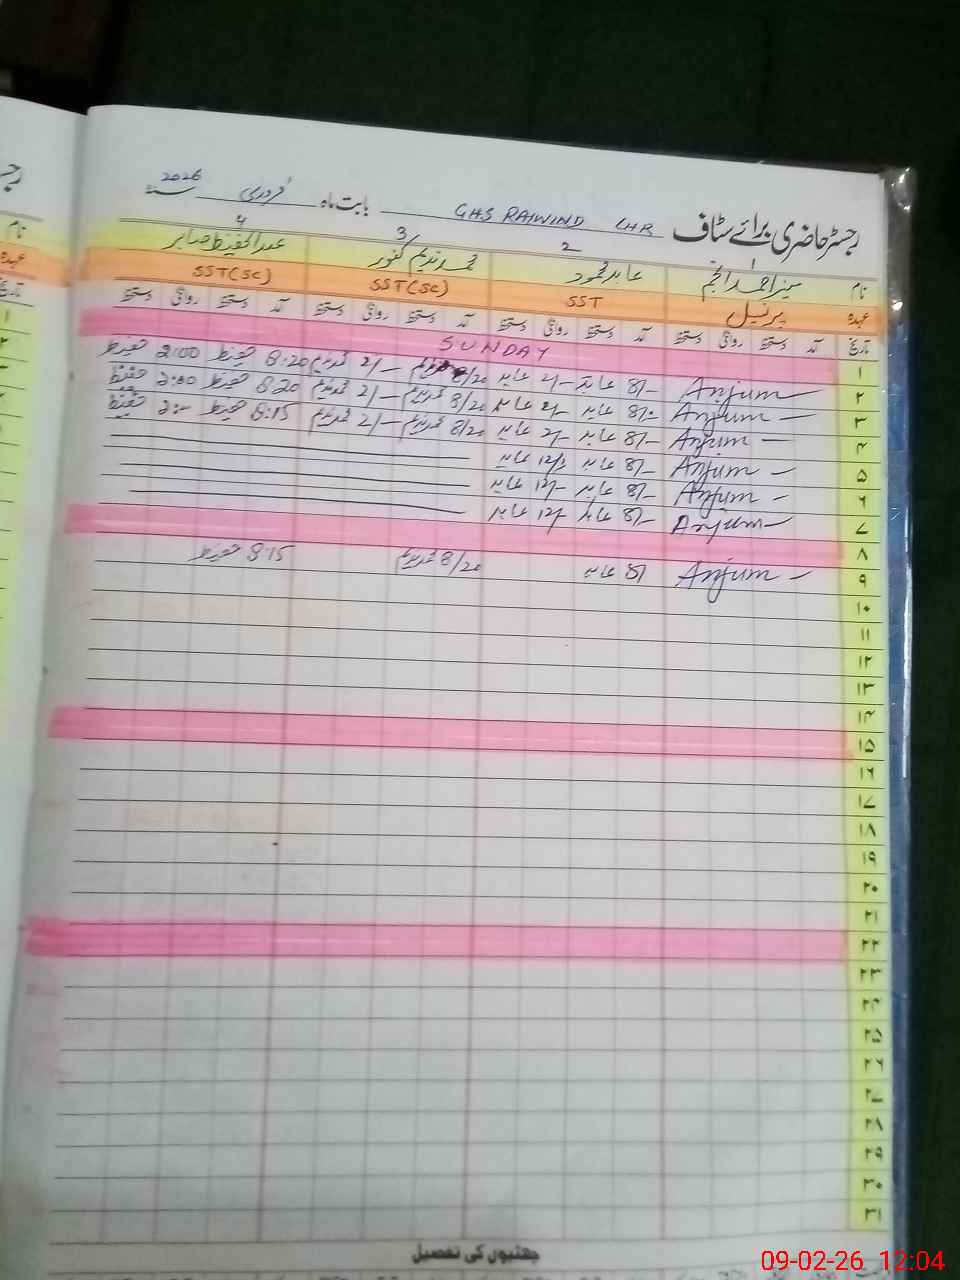 رجسٹر حاضری برائے سٹاف GHS RAIWIND LHR بابت ماہ فروری سنہ 2026
نام 1 منیر احمد انجم 2 عابد محمود 3 محمد ندیم کنور 4 عبدالحفیظ صابر
عہدہ پرنسپل SST SST(SC) SST(SC)
تاریخ آمد دستخط روانگی دستخط آمد دستخط روانگی دستخط آمد دستخط روانگی دستخط آمد دستخط روانگی دستخط
۱ SUNDAY
۲ Anjum 8/- عابد 2/- عابد 8/20 2/- محمد ندیم 8:20 حفیظ 2:00 حفیظ
۳ Anjum 8/- عابد 2/- عابد 8/20 محمد ندیم 2/- محمد ندیم 8:20 حفیظ 2:00 حفیظ
۴ Anjum 8/- عابد 2/- عابد 8/20 محمد ندیم 2/- محمد ندیم 8:15 حفیظ حفیظ
۵ Anjum 8/- عابد عابد
۶ Anjum 8/- عابد 12/- عابد
۷ Anjum 8/- عابد 12/- عابد
۸
۹ Anjum 8/ عابد 8/20 محمد ندیم 8:15 حفیظ
۱۰
۱۱
۱۲
۱۳
۱۴
۱۵
۱۶
۱۷
۱۸
۱۹
۲۰
۲۱
۲۲
۲۳
۲۴
۲۵
۲۶
۲۷
۲۸
۲۹
۳۰
۳۱
چھٹیوں کی تفصیل
نام
عہدہ
تاریخ
09-02-26 12:04